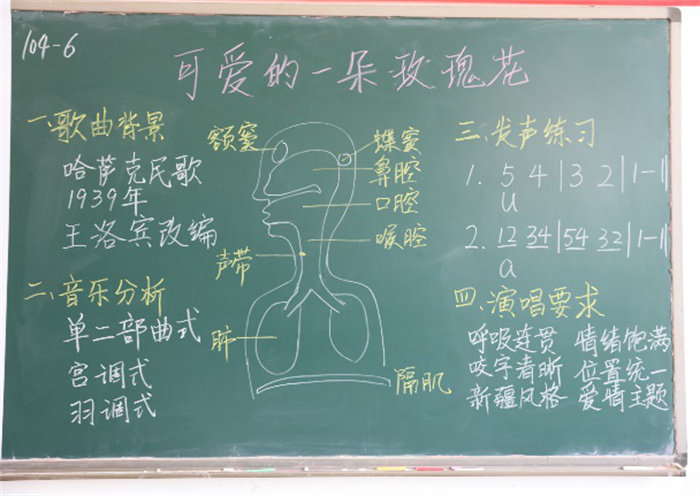 104-6
可爱的一朵玫瑰花
一.歌曲背景
哈萨克民歌
1939年
王洛宾改编
二.音乐分析
单二部曲式
宫调式
羽调式
额窦
蝶窦
鼻腔
口腔
喉腔
声带
肺
隔肌
三.发声练习
1. 5 4 | 3 2 | 1 - ‖
u
2. 12 34 | 54 32 | 1 - ‖
a
四.演唱要求
呼吸连贯 情绪饱满
咬字清晰 位置统一
新疆风格 爱情主题